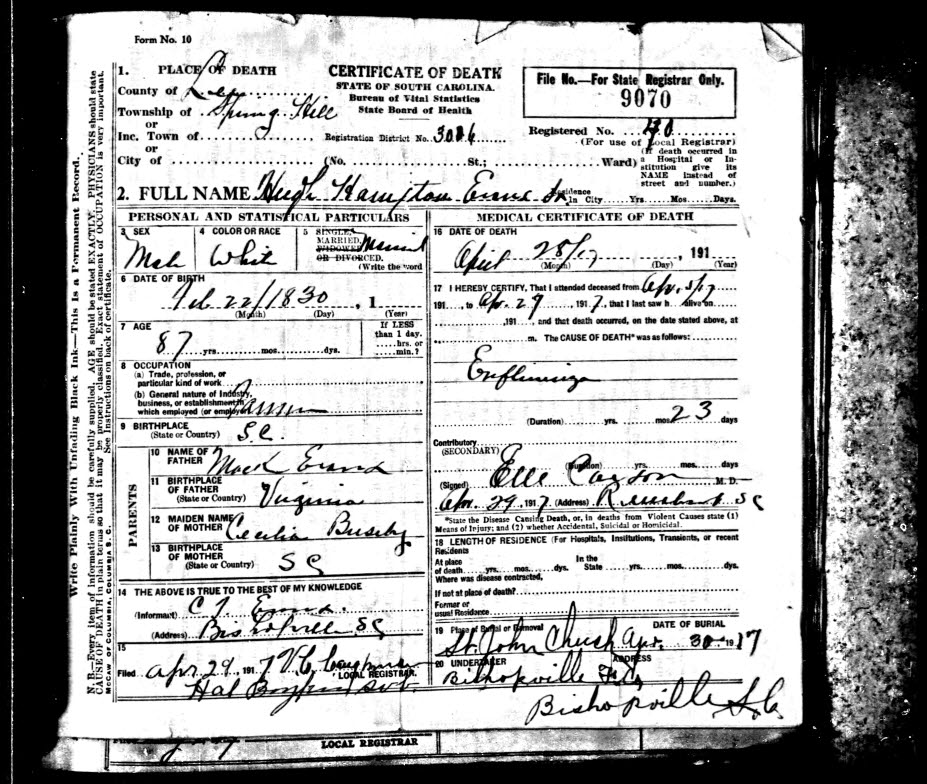 Form No. 10
1. PLACE OF DEATH
County of Lee
Township of Spring Hill
or
Inc. Town of
or
City of
CERTIFICATE OF DEATH
STATE OF SOUTH CAROLINA.
Bureau of Vital Statistics
State Board of Health
Registration District No. 3006
(No. St.; Ward)
File No.—For State Registrar Only.
9070
Registered No. 40
(For use of Local Registrar)
(If death occurred in
a Hospital or In-
stitution give its
NAME instead of
street and number.)
2. FULL NAME Hugh Hampton Evans Sr. Residence in City Yrs. Mos. Days.
PERSONAL AND STATISTICAL PARTICULARS
3 SEX
Male
4 COLOR OR RACE
White
5 SINGLE,
MARRIED,
WIDOWED
OR DIVORCED.
Married
(Write the word
6 DATE OF BIRTH
Feb 22/1830, 1
(Month) (Day) (Year)
7 AGE
87 yrs. mos. dys.
If LESS
than 1 day.
hrs. or
min.?
8 OCCUPATION
(a) Trade, profession, or
particular kind of work
(b) General nature of Industry,
business, or establishment in
which employed (or employer)
Farmer
9 BIRTHPLACE
(State or Country) S.C.
PARENTS
10 NAME OF
FATHER Mack Evans
11 BIRTHPLACE
OF FATHER
(State or Country) Virginia
12 MAIDEN NAME
OF MOTHER Cecilia Busby
13 BIRTHPLACE
OF MOTHER
(State or Country) S C
14 THE ABOVE IS TRUE TO THE BEST OF MY KNOWLEDGE
(Informant) C T. Evans.
(Address) Bishopville SC
15
Filed Apr 29, 1917
LOCAL REGISTRAR.
MEDICAL CERTIFICATE OF DEATH
16 DATE OF DEATH
April 28/17, 191
(Month) (Day) (Year)
17 I HEREBY CERTIFY, That I attended deceased from Apr. 5/17
191 , to Apr. 27, 1917, that I last saw h alive on
, 191 , and that death occurred, on the date stated above, at
m. The CAUSE OF DEATH* was as follows:
(Duration) yrs. mos. 23 days
Contributory
(SECONDARY)
(Duration) yrs. mos. days
(Signed) M. D.
Apr. 29, 1917 (Address) SC
*State the Disease Causing Death, or, in deaths from Violent Causes state (1)
Means of Injury; and (2) whether Accidental, Suicidal or Homicidal.
18 LENGTH OF RESIDENCE (For Hospitals, Institutions, Transients, or recent
Residents
At place
of death yrs. mos. dys.
In the
State yrs. mos. dys.
Where was disease contracted,
If not at place of death?
Former or
usual Residence
19 Place of Burial or Removal
St. John Church
DATE OF BURIAL
Apr. 30 1917
20 UNDERTAKER
Bishopville
ADDRESS
Bishopville S.C.
Write Plainly With Unfading Black Ink—This Is a Permanent Record.
N. B.—Every item of information should be carefully supplied. AGE should be stated EXACTLY. PHYSICIANS should state
CAUSE OF DEATH in plain terms so that it may be properly classified. Exact statement of OCCUPATION is very important.
See Instructions on back of certificate.
McCAW OF COLUMBIA, COLUMBIA S. C.
LOCAL REGISTRAR